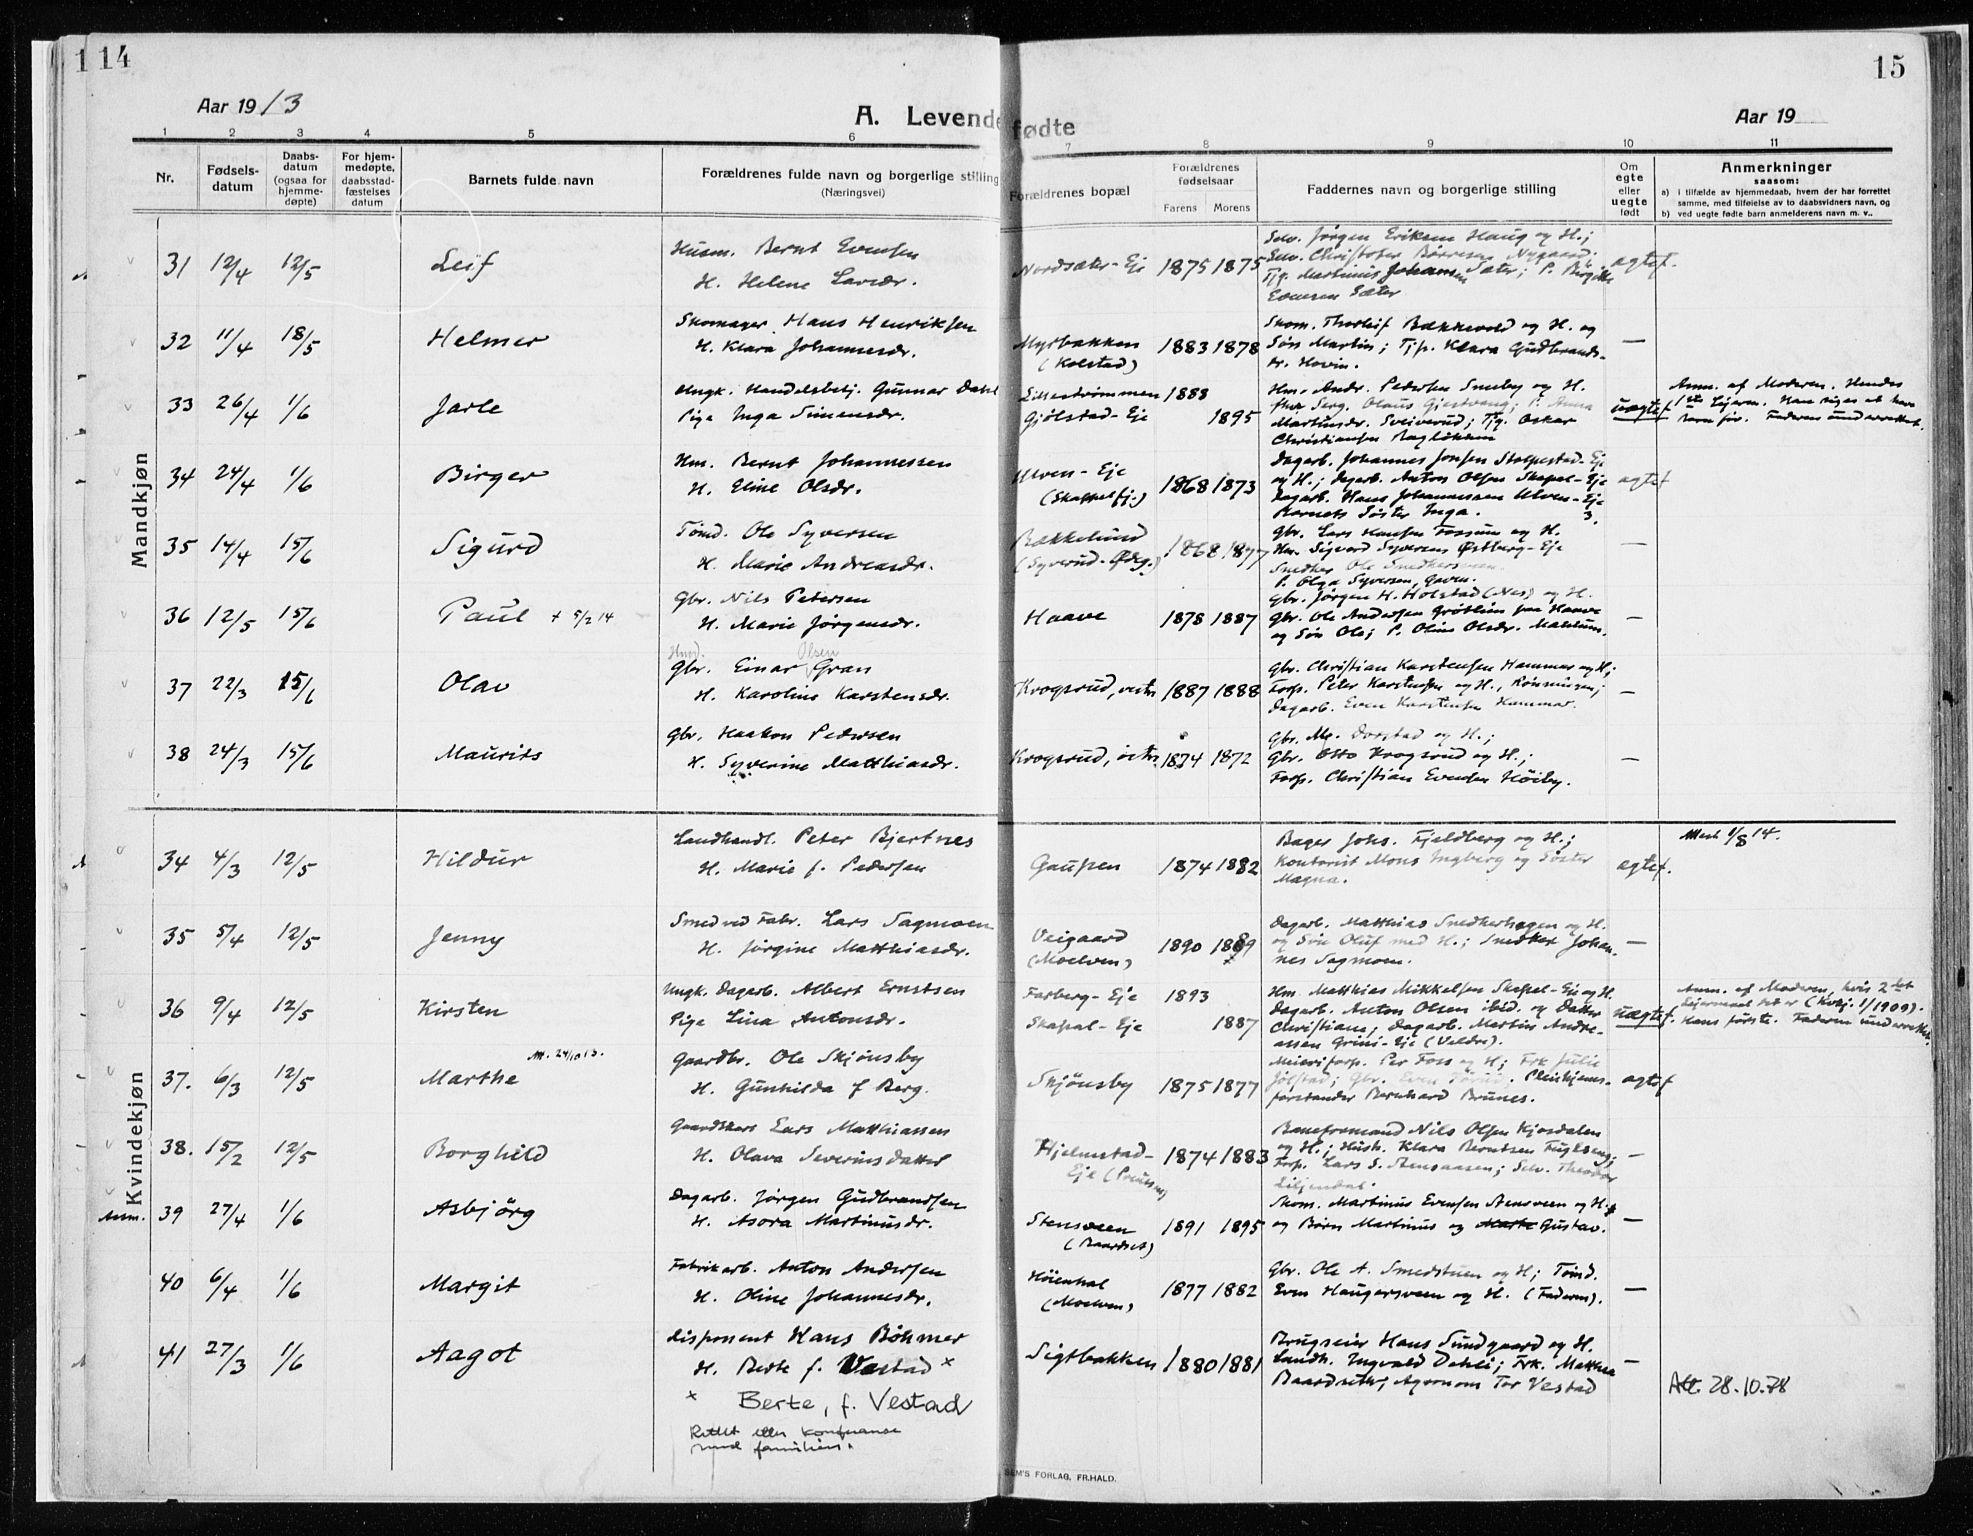 1 14
15
Aar 1913
A. Levende fødte
Aar 19
1 2 3 4 5 6 7 8 9 10 11
Nr.
Fødsels-
datum
Daabs-
datum
(ogsaa for
hjemme-
døpte)
For hjem-
medøpte,
daabsstad-
fæstelses
datum
Barnets fulde navn
Forældrenes fulde navn og borgerlige stilling
(Næringsvei)
Forældrenes bopæl
Forældrenes
fødselsaar
Farens Morens
Faddernes navn og borgerlige stilling
Om
egte
eller
uegte
født
Anmerkninger
saasom:
a) i tilfælde av hjemmedaab, hvem der har forrettet
samme, med tilføielse av to daabsvidners navn, og
b) ved uegte fødte barn anmelderens navn m. v..
Mandkjøn
31 12/4 12/5 Leif
Husm. Bernt Evensen
H. Helene Larsdr.
Nordsæter-Eje 1875 1875
Selv. Jørgen Eriksen Haug og H.;
Selv. Christofer Børresen Nygaard;
Tjg. Martinius Johansen Sæter; P. Birgitte
Evensen Sæter
egtef.
32 11/4 18/5 Helmer
Skomager Hans Henriksen
H. Klara Johannesdr.
Myrbakken
(Kolstad)
1883 1878
Skom. Thorleif Bækkevold og H. og
Søn Martin; Tjp. Klara Gudbrands-
dr. Hovin.
—
33 26/4 1/6 Jarle
Ungk. Handelsbetj. Gunnar Dahl
Pige Inga Simensdr.
Lillestrømmen 1888
Gjølstad-Eje 1895
Hm. Andr. Pedersen Smeby og H.
Serg. Olaus Gjestvang; P. Anna
Martinsdr. Sveiverud; Tjg. Oskar
Christiansen Bagløkken
uegtef.
Anm. af Moderen. Hendes
1ste Lejerm. Han siges at have
Barn før. Faderen underrettet.
34 24/4 1/6 Birger
Hm. Bernt Johannessen
H. Eline Olsdr.
Ulven-Eje
(Skappelfj.)
1868 1873
Dagarb. Johannes Jonsen Stolpestad-Eje
og H.; Dagarb. Anton Olsen Skapal-Eje
Dagarb. Hans Johannessen Ulven-Eje
Barnets Søster Inga. 3.
egtef
35 14/4 15/6 Sigurd
Tømd. Ole Syversen
H. Marie Andreasdr.
Bækkelund
(Syverud-Ødeg.)
1868 1877
Gbr. Lars Hansen Fossum og H.
Hm. Sigvard Syversen Østberg-Eje
Snedker Ole Snedkersveen.
P. Olga Syversen, Gaven.
—
36 12/5 15/6 Paul + 5/2 14
Gbr. Nils Petersen
H. Marie Jørgensdr.
Haave 1878 1887
Gbr. Jørgen H. Holstad (Nes) og H.
Gbr. Ole Andersen Grøtlien paa Haave
og Søn Ole; P. Oline Olsdr. Mælum.
—
37 22/3 15/6 Olav
Hmd. Olsen
Gbr. Einar Gran
H. Karoline Karstensdr.
Krogsrud, vestre 1887 1888
Gbr. Christian Karstensen Hammer og H;
Forp. Peter Karstensen og H., Rønningen;
Dagarb. Even Karstensen Hammer.
—
38 24/3 15/6 Maurits
Gbr. Haakon Pedersen
H. Syverine Matthiasdr.
Krogsrud, østre 1874 1872
Gbr. M. Dorstad og H.;
Gbr. Otto Krogsrud og H.;
Forp. Christian Evensen Høiby.
—
Kvindekjøn
34 4/3 12/5 Hildur
Landhandl. Peter Bjertnes
H. Marie f. Pedersen
Gaupen 1874 1882
Bager Johs. Fjeldberg og H.;
Kontorist Mons Ingberg og Søster
Magna.
egtef.
Attest 1/8 14.
35 5/4 12/5 Jenny
Smed ved Fabr. Lars Sagmoen
H. Jørgine Matthiasdr.
Veigaard
(Moelven)
1890 1889
x
Dagarb. Matthias Snedkerhagen og H.
og Søn Oluf med H.; Snedker Johan-
nes Sagmoen.
—
36 9/4 12/5 Kirsten
Ungk. Dagarb. Albert Ernstsen
Pige Lina Antonsdr.
Farberg-Eje 1893
Skapal-Eje 1887
Hm. Matthias Mikkelsen Skapal-Eje og H.
Dagarb. Anton Olsen ibid. og Datter
Christiane; Dagarb. Martin Andre-
assen Grini-Eje (Veldre).
uegtef.
Anm. af Moderen, hvis 2det
Lejermaal det er (Kvkj. 1/1909).
Hans første. Faderen underrettet.
37. 6/3 12/5 Marthe
Att. 24/10 13.
Gaardbr. Ole Skjønsby
H. Gunhilda f. Berg.
Skjønsby 1875 1877
Meieriforp. Per Foss og H; Frk. Julie
Jølstad; Gbr. Even Tørud. Pleiehjems-
forstander Bernhard Brunes.
egtef
38. 15/2 12/5 Borghild
Gaardskar Lars Matthiassen
H. Olava Severinsdatter
Hjelmstad-
Eje
1874 1883
Baneformand Nils Olsen Kjosdalen
og H.; Hush. Klara Berntsen Fuglseng;
Forp. Lars S. Stensaasen; Selv. Theodor
Liljendal.
—
Anm. 39 27/4 1/6 Asbjørg
Dagarb. Jørgen Gudbrandsen
H. Asora Martinusdr.
Stensveen
(Baardset)
1891 1895
Skom. Martinus Evensen Stensveen og H.
og Børn Martinus og Gustav.
—
40 6/4 1/6 Margit
Fabrikarb. Anton Andersen
H. Oline Johannesdr.
Høienhal
(Moelven)
1877 1882
Gbr. Ole A. Smedstuen og H; Tømd.
Even Haugersveen og H. (Faderen).
—
41 27/3 1/6 Aagot
Disponent Hans Bøhmer
H. Berte f. Vestad x
x Berte, f. Vestad
Rettet efter konferanse
med familien.
Sigtbakken 1880 1881
Brugseier Hans Sundgaard og H.
Landh. Ingvald Dehli; Frk. Matthea
Baardseth; Agronom Tor Vestad
—
Att. 28.10.78
SEM'S FORLAG, FR.HALD.